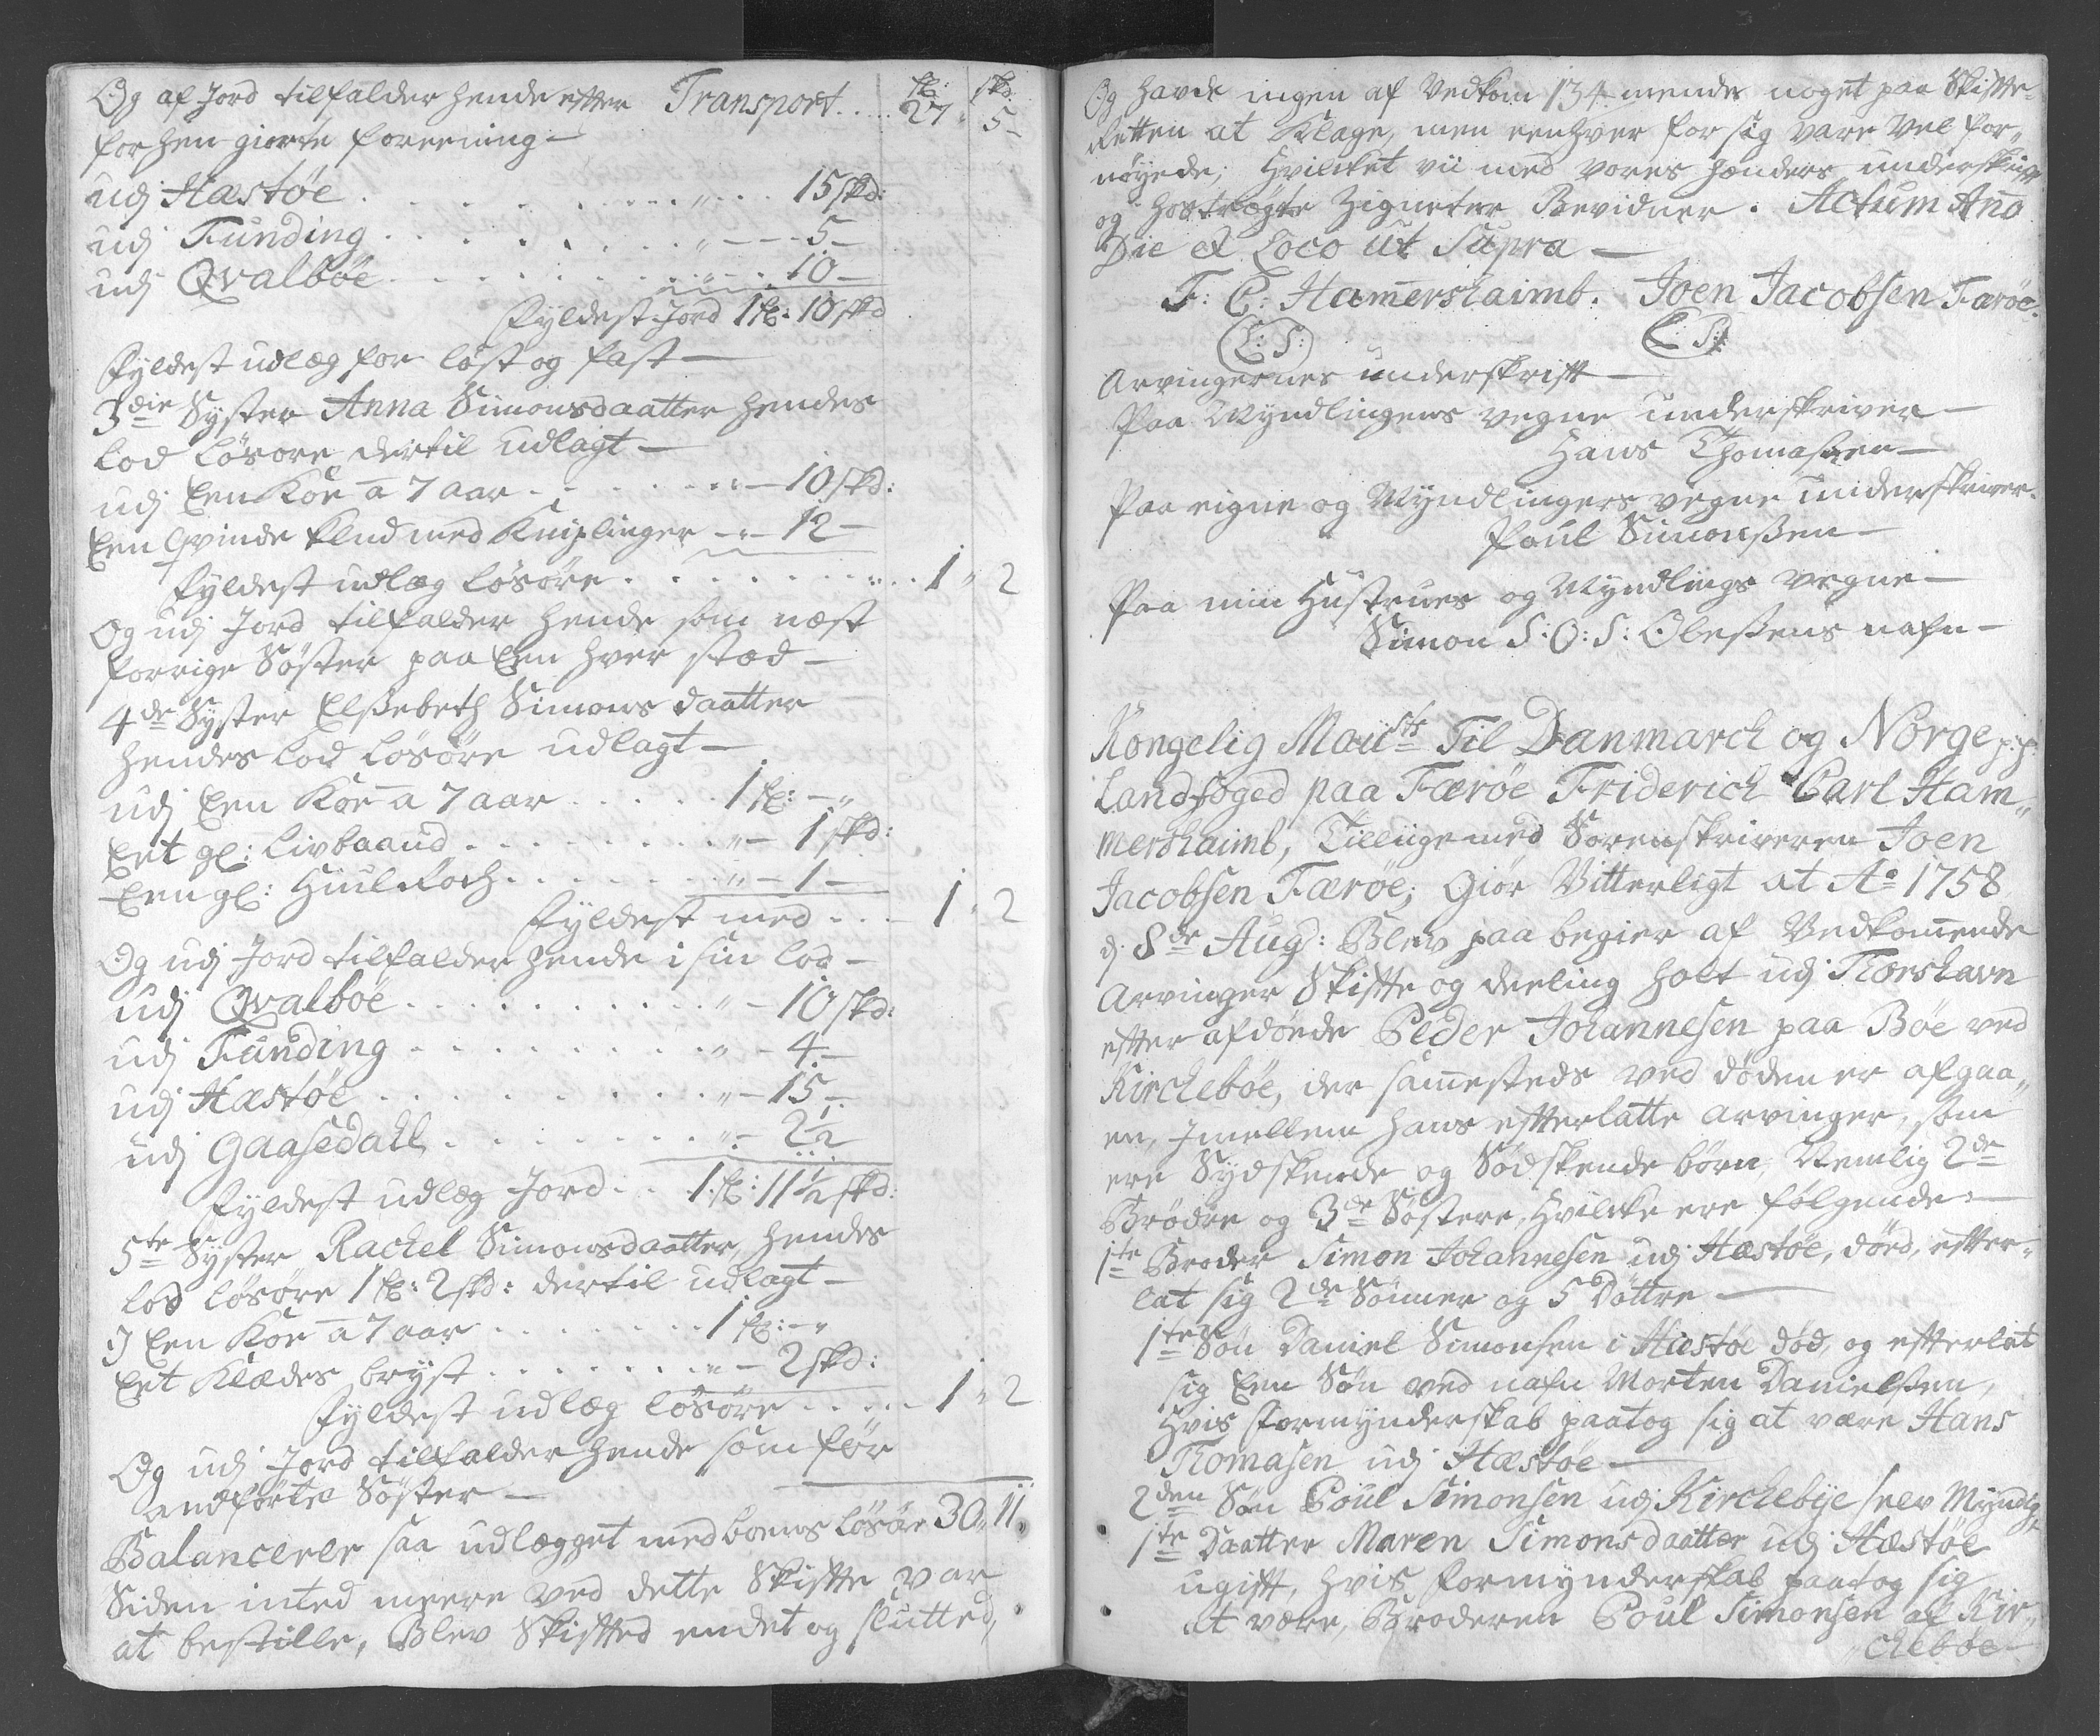 Og af Jord tilfalder hende efter Transport..... 27 " 5 -
forhen giorte foreening -
udj Hæstøe . . . . . . . " . . . 15 skd:
udj Funding . . . . . . . " - - - 5 -
udj Qvalbøe . . . . . . . . . 10 -
Fyldest Jord 1 fl: 10 skd
Fyldest udlæg for løst og fast -
3die Syster Anna Simonsdaatter hendes
Lod Løsøre dertil udlagt -
udj Een Koe a 7 aar . . . . . . " - 10 skd:
Een Qvinde klud med Kniplinger - " - 12 -
Fyldest udlæg Løsøre . . . . . . . . 1 " 2
Og udj Jord tilfalder hende som næst
forrige Søster paa Een hver stæd -
4de Syster Elßebeth Simons daatter
hendes Lod Løsøre udlagt -
udj Een Koe a 7 aar . . . . . 1 fl: - "
Eet gl: Livbaand . . . . . . . . " - 1 skd:
Een gl: Huil Roch . . . . . . . " - 1 -
Fyldest med . . . - 1 " 2
Og udj Jord tilfalder hende i sin Lod -
udj Qvalbøe . . . . . . . . . . " - 10 skd:
udj Funding . . . . . . . . . " - 4 -
udj Hæstøe . . . . . . . . . . " - 15 -
udj Gaasedahl . . . . . . . . " - 2 1/2
Fyldest udlæg Jord . . 1 fl: 11 1/2 skd:
5te Syster Rachel Simonsdaatter, hendes
Lod Løsøre 1 fl: 2 skd: dertil udlagt -
J Een Koe a 7 aar . . . . . . . 1 fl: - "
Eet Klædes bryst . . . . . . . " - 2 skd:
Fyldest udlæg Løsøre . . . . . 1 " 2
Og udj Jord tilfalder hende som før
andførte Søster -
Balancerer saa udlægget med boens Løsøre 30 " 11 "
Siden inted meere ved dette Skifte var
at bestille, Blev Skifted endet og slutted,
Og havde ingen af Vedkom 134 mende noget paa Skifte-
Retten at Klage, men eenhver for sig vare vel for„
nøyede; Hvilcket vii med vores hænders underskrift
og hostrøgte Zigneter Bevidner. Actum Ano
Die et Loco ut Supra -
F: C: Hamershaimb. Joen Jacobsen Færøe.
(L:S:) (L:S:)
Arvingernes underskrift -
Paa Myndlingens vegne underskriver -
Hans Thomaßen -
Paa eigne og Myndlingers vegne underskriver.
Poul Simonßen -
Paa min Hustrues og Myndlings vegne -
Simon S: O: S: Oleßens nafn -
Kongelig Mayts Til Danmarck og Norge p:p:
Landfoged paa Færøe Friderich Carl Ham„
mershaimb, Tilliige med Sorenskriveren Joen
Jacobsen Færøe; Giør Vitterligt at Ao 1758
d: 8de Aug: Blev paa begier af Vedkomende
Arvinger Skifte og deeling holt udj Thorshavn
efter afdøede Peder Johannesen paa Bøe ved
Kirchebøe, der samesteds ved døden er afgaa„
en, Jmellem hans efterlatte Arvinger, som
ere Sydskende og Sødskende børn, Nemlig 2de
Brødre og 3de Søstere, Hvilcke ere følgende -
1te Broder Simon Johannesen udj Hæstøe, død, efter-
lat sig 2de Sønner og 5 Døttre -
1te Søn Daniel Simonsen i Hæstøe død, og efterlat
sig Een Søn ved nafn Morten Danielßen,
Hvis formynderskab paatog sig at være Hans
Thomasen udj Hæstøe -
2den Søn Poul Simonsen udj Kirchebye selv Myndig,
1te Daatter Maren Simonsdaatter udj Hæstøe
ugift, hvis formynderskab paatog sig
at være, Broderen Poul Simonsen af Kir„
„chebøe -